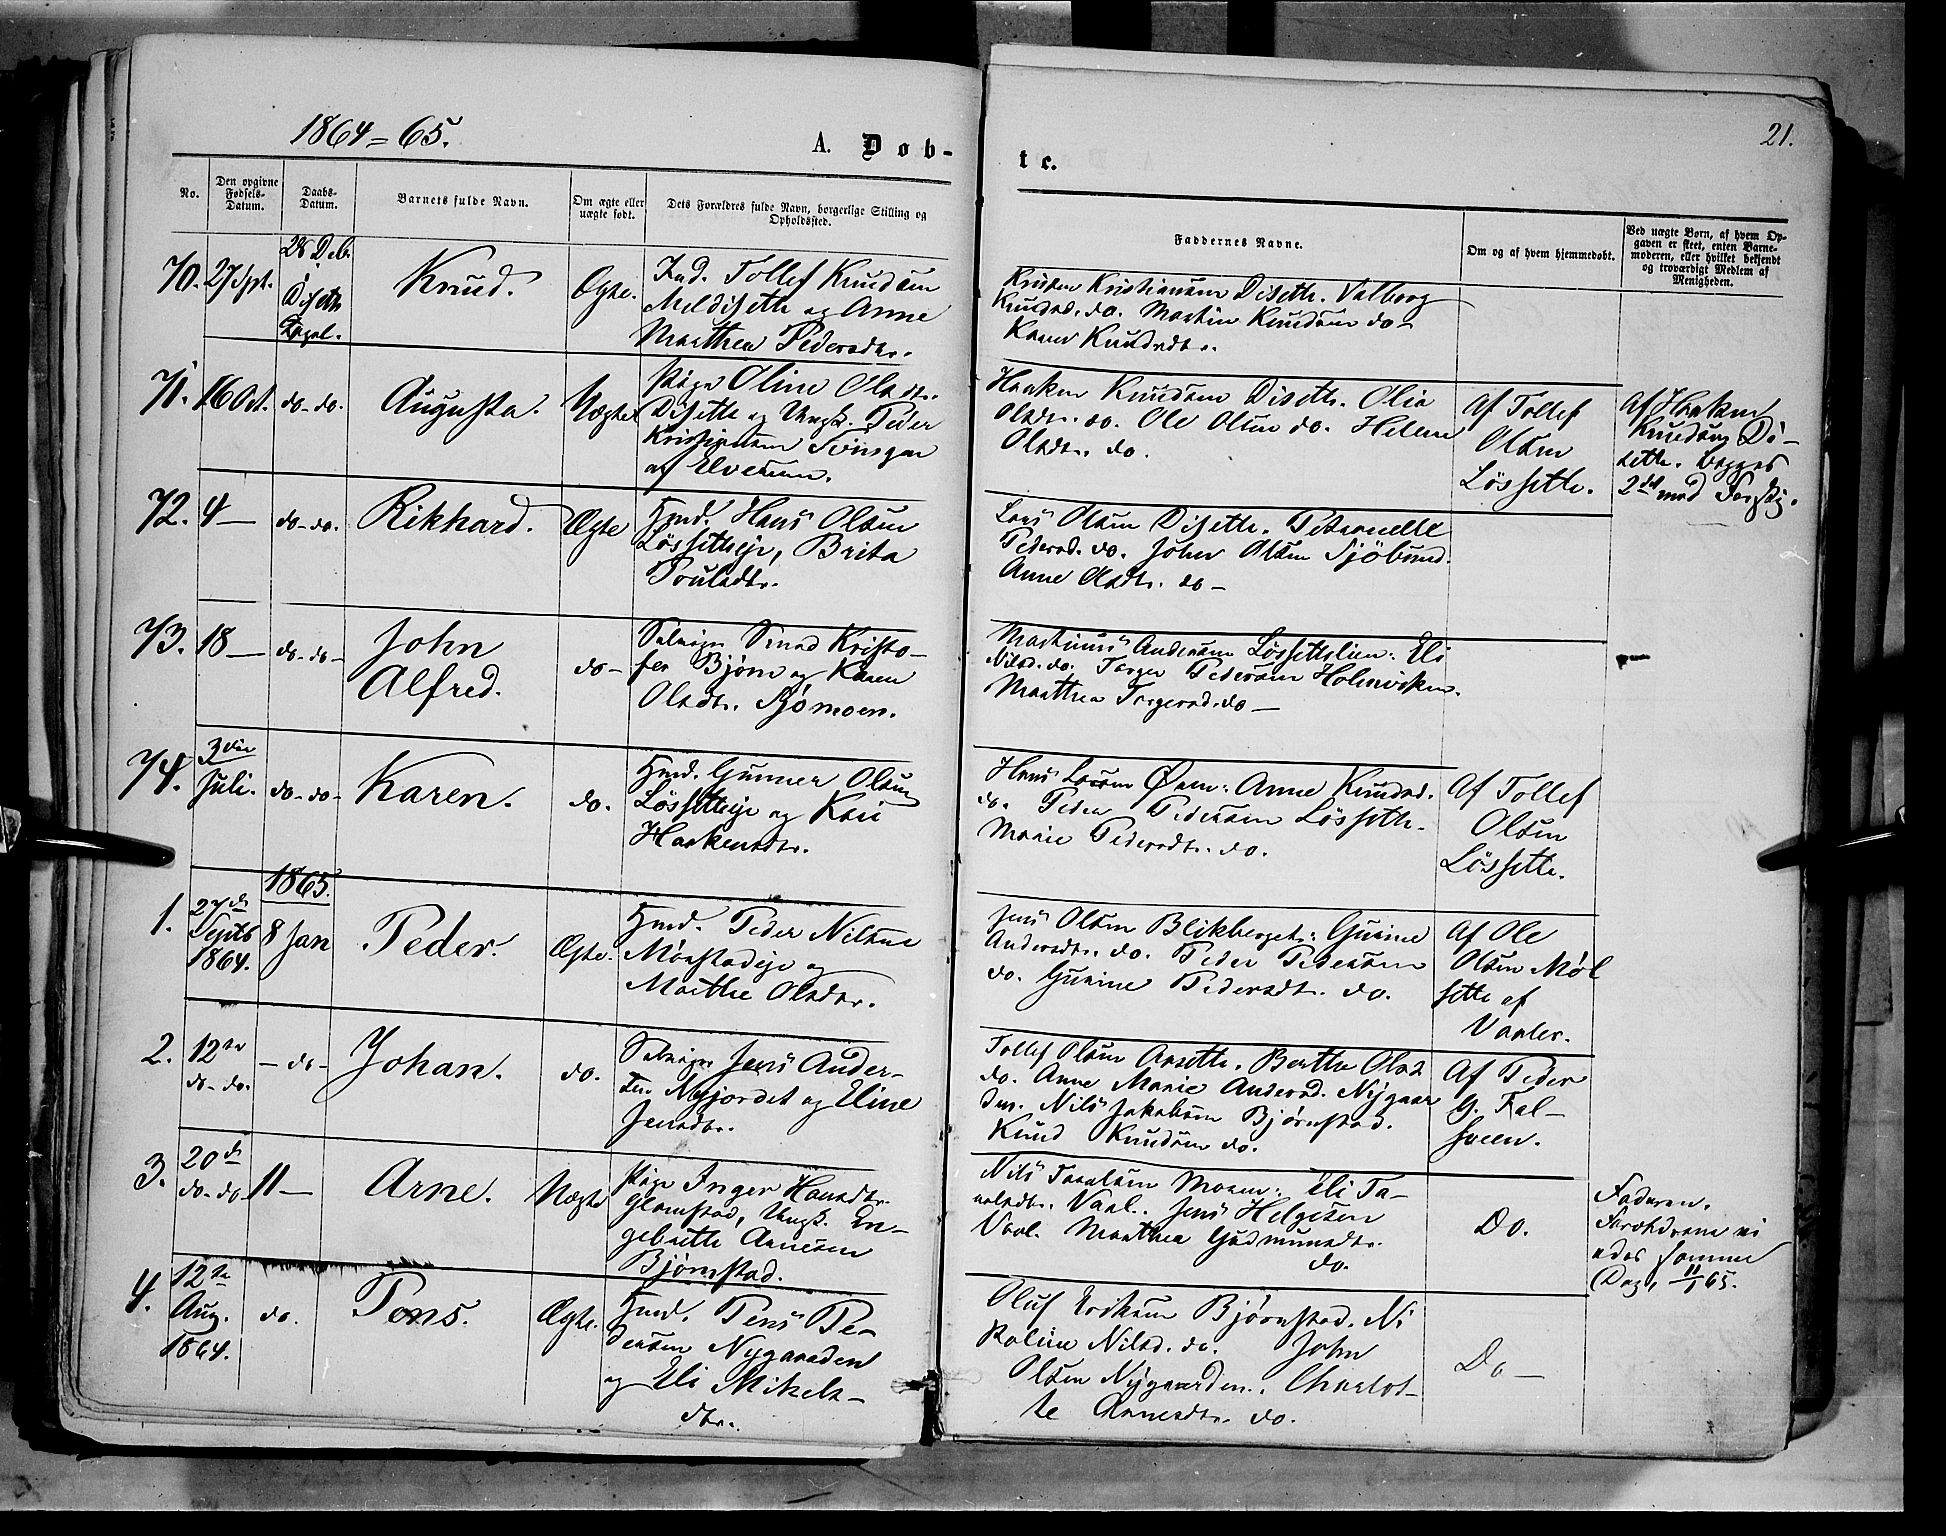 1864=65.
A. Døb-
te.
21.
No.
Den opgivne Fødsels-Datum.
Daabs-Datum.
Barnets fulde Navn.
Om ægte eller uægte født.
Dets Forældres fulde Navn, borgerlige Stilling og Opholdssted.
Faddernes Navne.
Om og af hvem hjemmedøbt.
Ved uægte Børn, af hvem Op-
gaven er skeet, enten Barne-
moderen, eller hvilket bekjendt
og troværdigt Medlem af
Menigheden.
70. 27 Spt. 28 Deb. i Disetts Kapel. Knud. Ægte.
Tollef Knudsen
Meldisette og Anne
Marthea Pedersdtr.
Kristiansen Disette. Valborg
Knudsd. do. Martin Knudsen do-
Karen Knudsdtr.
71. 16 Oct. do-do. Augusta. Uægte
Pige Oline Olsdtr.
Disette og Ungk. Peder
Kristiansen
af Elverum.
Haaken Knudsen Disett. Olia
Olsdtr. do. Ole Olsen do. Helene
Olsdtr. do.
Af Tollef
Olsen
Løssette.
Af Haaken
Knudsen Di-
sette. Begges
2det med
72. 4 — do-do. Rikhard. Ægte
Hmd. Hans Olsen
Løssetteje, Brita
Poulsdtr.
Lars Olsen Disette. Peternelle
Pedersd. do. John Olsen Sjöbund.
Anne Olsdtr. do-
73. 18 — do-do- John
Alfred. do-
Smed Kristo-
fer Bjørn og Karen
Olsdtr. Sjømoen.
Martinus Andersen Løssetlien. Eli
Nilsd. do. Torger Pedersen Holmviken.
Marthea Torgersd. do-
74. 3die Juli. do-do- Karen. do.
Hmd. Gunner Olsen
Løssetteje og Kari
Haakensdtr.
Hans Larsen Øren. Anne Knudsd.
do. Peder Pedersen Løssette.
Marie Pedersdtr. do.
Af Tollef
Olsen
Løssette.
1865.
1. 27de Septb 1864. 8 Jan Peder. Ægte.
Hmd. Peder Nilsen
Mørstadeje og
Marthe Olsdtr.
Jens Olsen Blikberget. Gunine
Andersdtr. do. Peder Pedersen
do. Gunine Pedersdtr. do.
Af Ole
Olsen Møl
sette af
Vaaler.
2. 12te do-do. -do- Johan. do.
Selveier Jens Ander-
sen Nyjordet og Eline
Jensdtr.
Tollef Olsen Arsette. Berthe Olsd
do. Anne Marie Andersd. Nygaar
den. Nils Jakobsen Bjørnstad.
Knud Knudsen do.
Af Peder
G. Fal-
sveen.
3. 20de do-do- 11- Arne. Uægte
Pige Inger Hansdtr.
Glomstad, Ungk. En-
gebrette Arnesen
Bjørnstad.
Nils Taralsen Moen. Eli Ta-
ralsdtr. Vaal. Jens Helgesen
Vaal. Marthea Gudmunsdtr.
do.
Do.
Faderen.
Forældrene vi
edes samme
Dag, 11/1 65.
4. 12te Aug. 1864. do. Pens. Ægte.
Hmd. Pens Pe-
dersen Nygaarden
og Eli Mikels-
dtr.
Oluf Eriksen Bjørnstad. Ni
koline Nilsd. do. John
Olsen Nygaarden. Charlot-
te Arnesdtr. do.
Do-